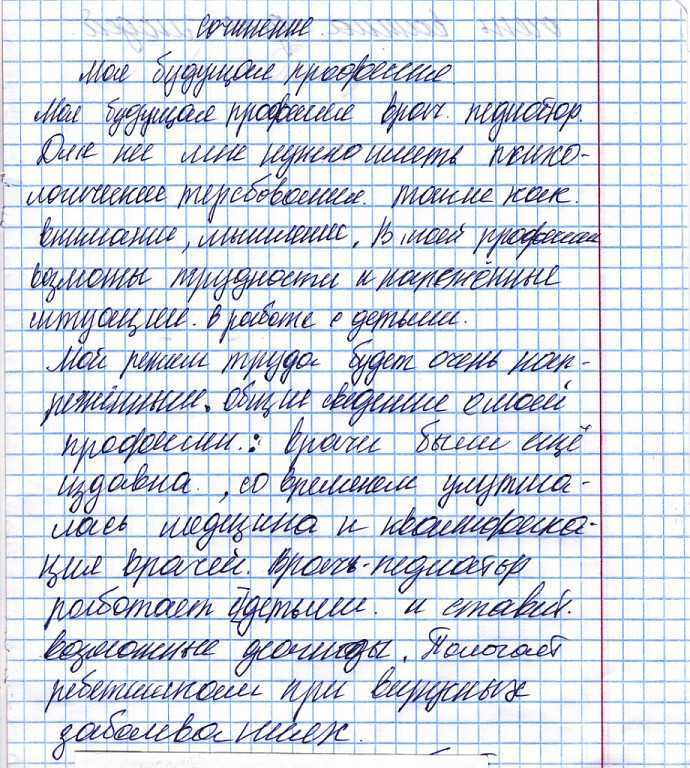 сочинение.
Моя будущая профессия
Моя будущая профессия врач. педиатор.
Для неё мне нужно иметь психо-
логические терсбования. такие как.
внимание, мышление. В моей професии
возможны трудности и напрежённые
ситуации. в работе с детьми.
Мой режим труда будет очень нап-
режённым. Общие сведение о моей
професии.: врачи были ещё
издавна., со временем улутша-
лась медицина и квалификa-
ция врачей. Врачь-педиатор
работает с детьми. и ставит.
возможные деогнозы. Помогает
ребетишкам при вирусных
заболеваниях.